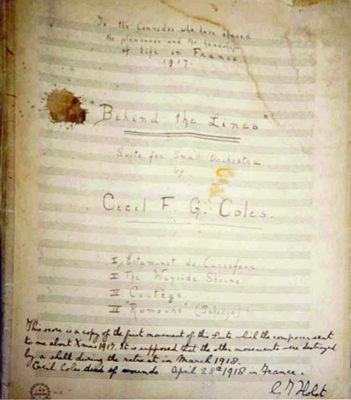 To the Comrades who have shared
the pleasures and the hardships
of life in France
1917.
"Behind the Lines"
Suite for Small Orchestra
by
Cecil F. G. Coles.
I Estaminet du Carrefour
II The Wayside Shrine
III Cortège
IV "Rumours"
This score is a copy of the first movement of the Suite which the composer sent
to me about Xmas 1917. It is supposed that the other movements were destroyed
by a shell during the retreat in March 1918.
Cecil Coles died of wounds April 28th 1918 in France.